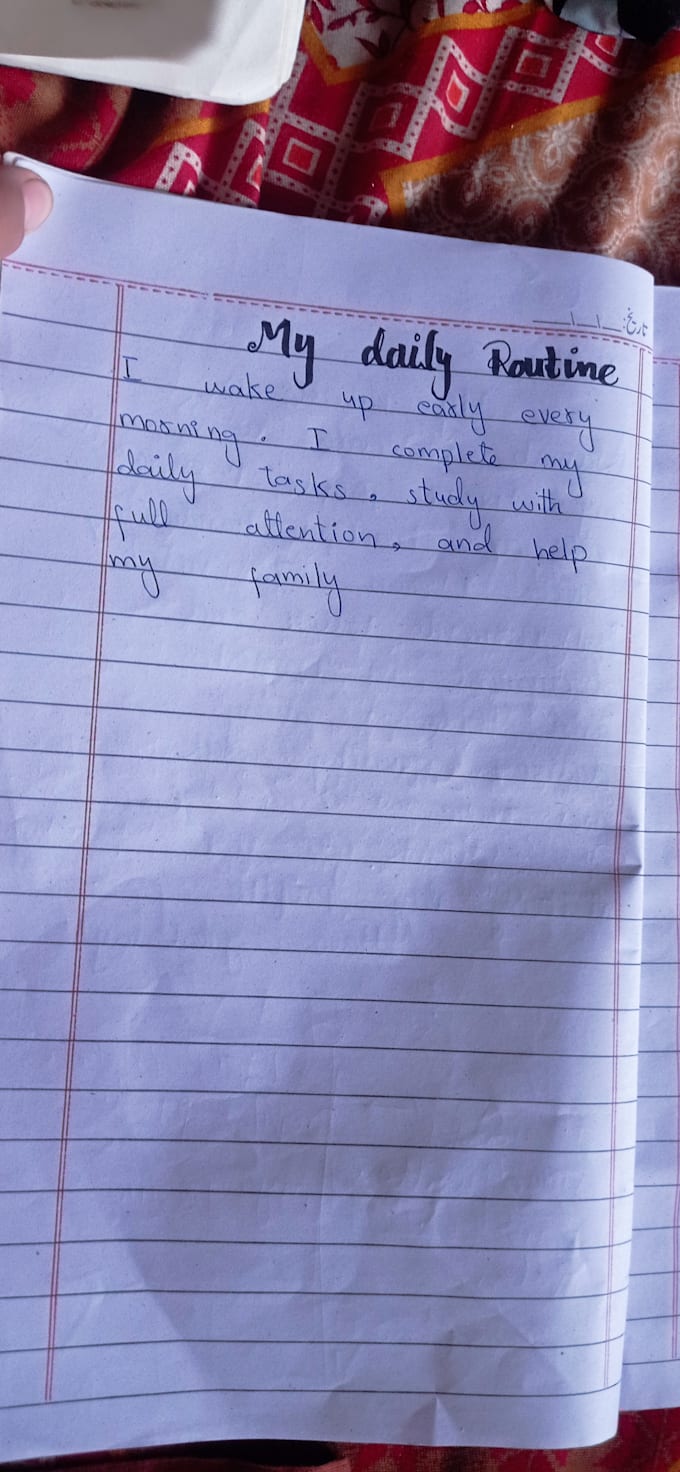 تاریخ:
My daily Routine
I wake up early every
morning. I complete my
daily tasks, study with
full attention, and help
my family